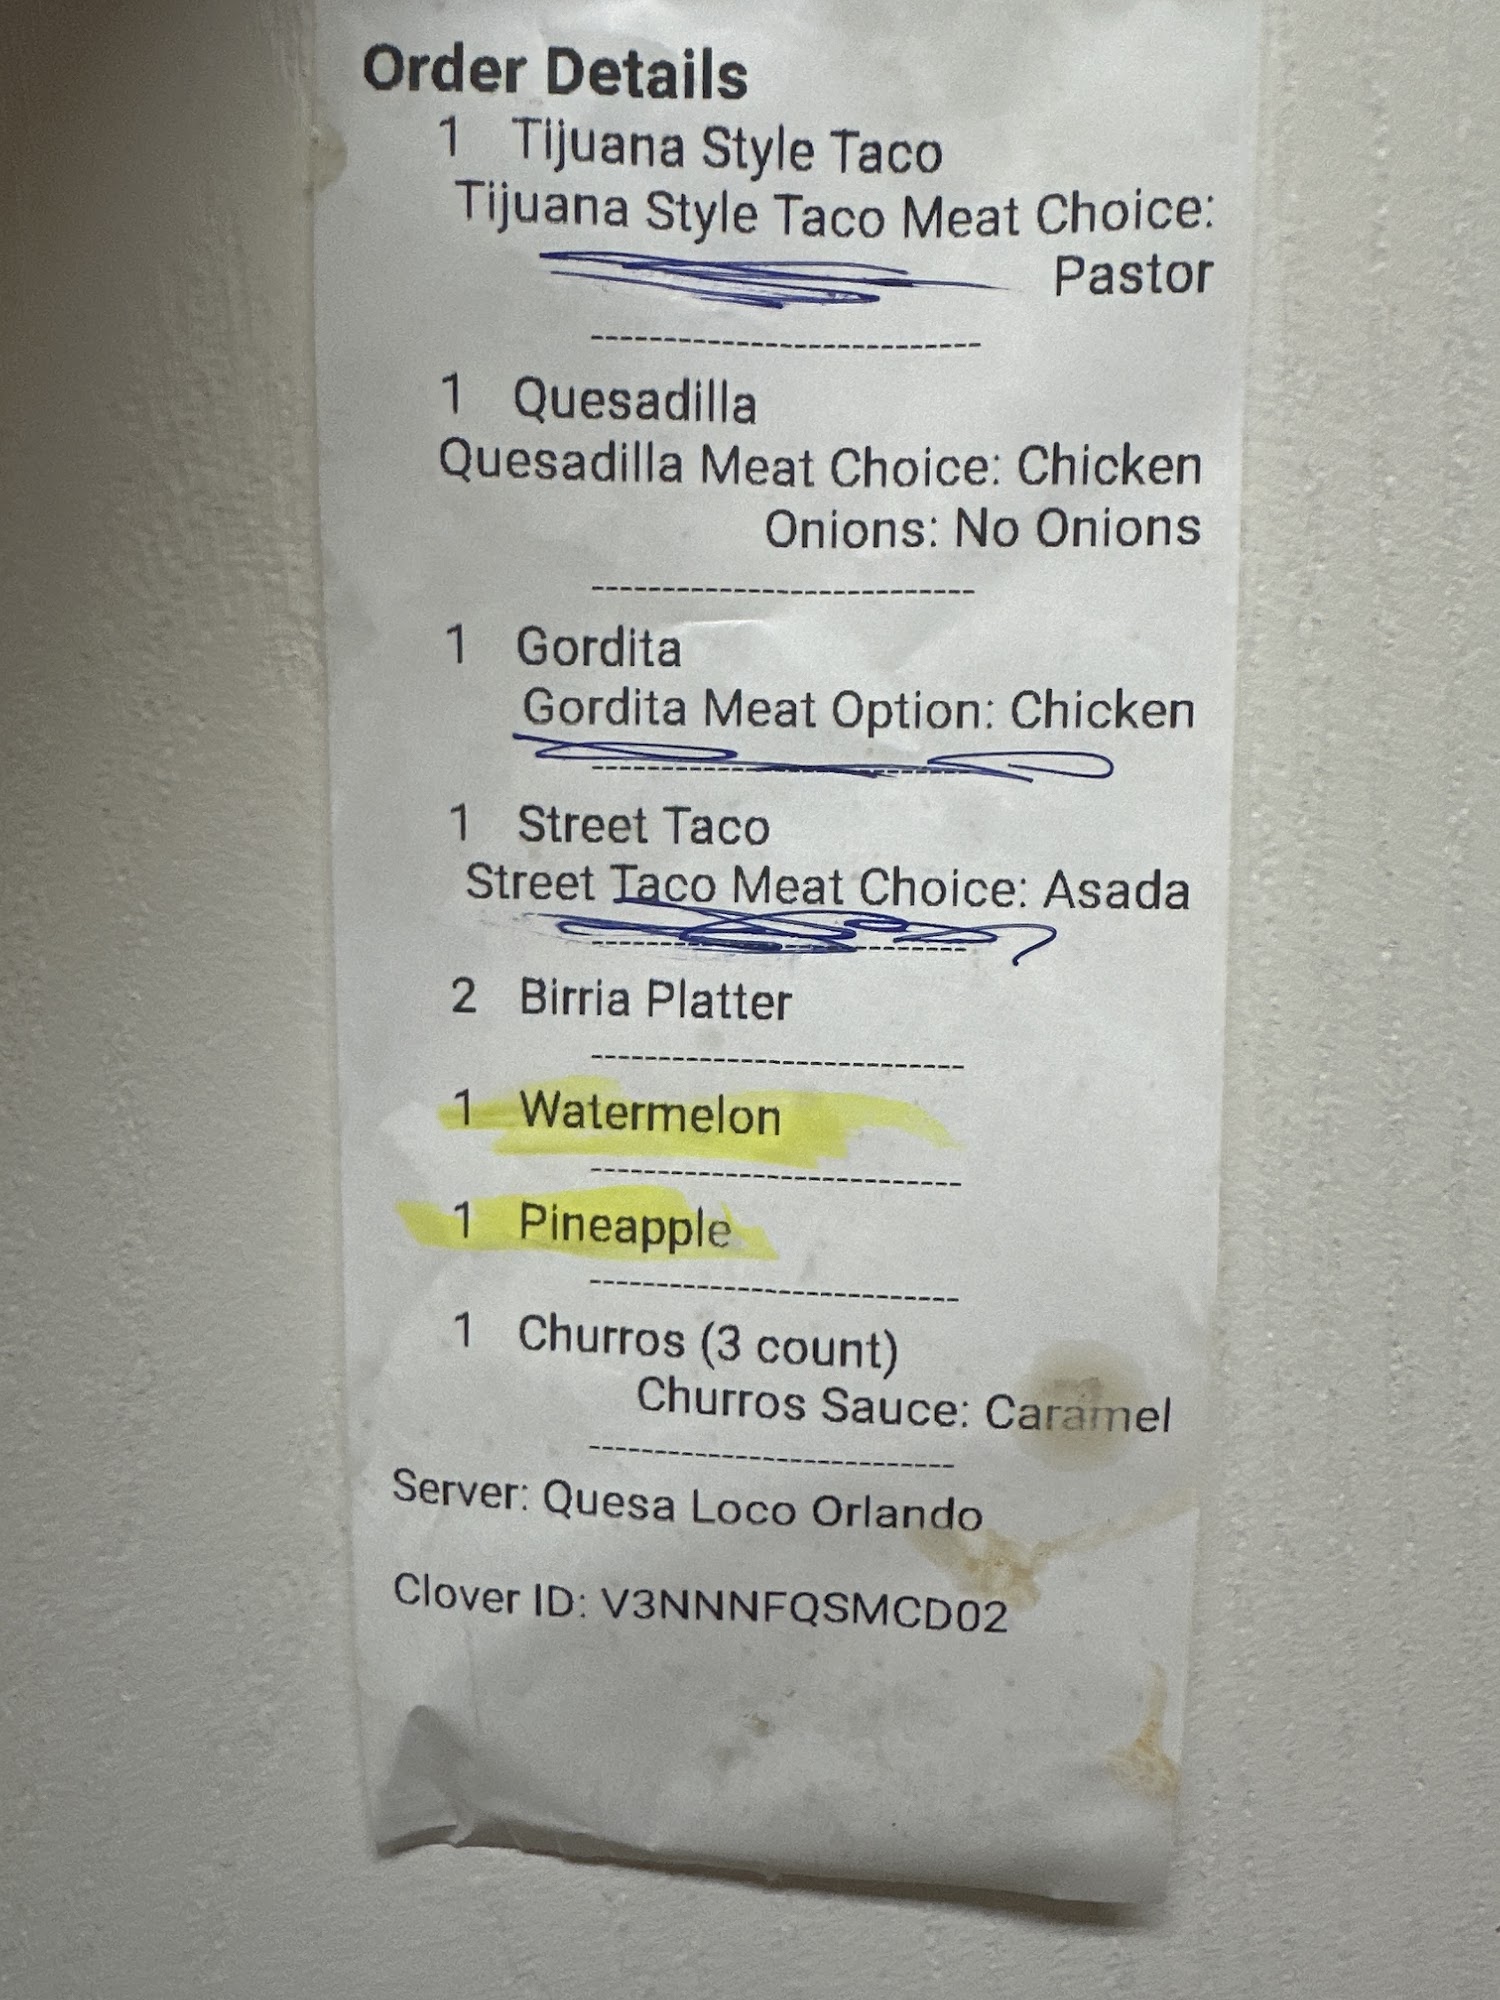 Order Details
1 Tijuana Style Taco
Tijuana Style Taco Meat Choice:
Pastor
--------------------------
1 Quesadilla
Quesadilla Meat Choice: Chicken
Onions: No Onions
--------------------------
1 Gordita
Gordita Meat Option: Chicken
--------------------------
1 Street Taco
Street Taco Meat Choice: Asada
--------------------------
2 Birria Platter
--------------------------
1 Watermelon
--------------------------
1 Pineapple
--------------------------
1 Churros (3 count)
Churros Sauce: Caramel
--------------------------
Server: Quesa Loco Orlando
Clover ID: V3NNNFQSMCD02